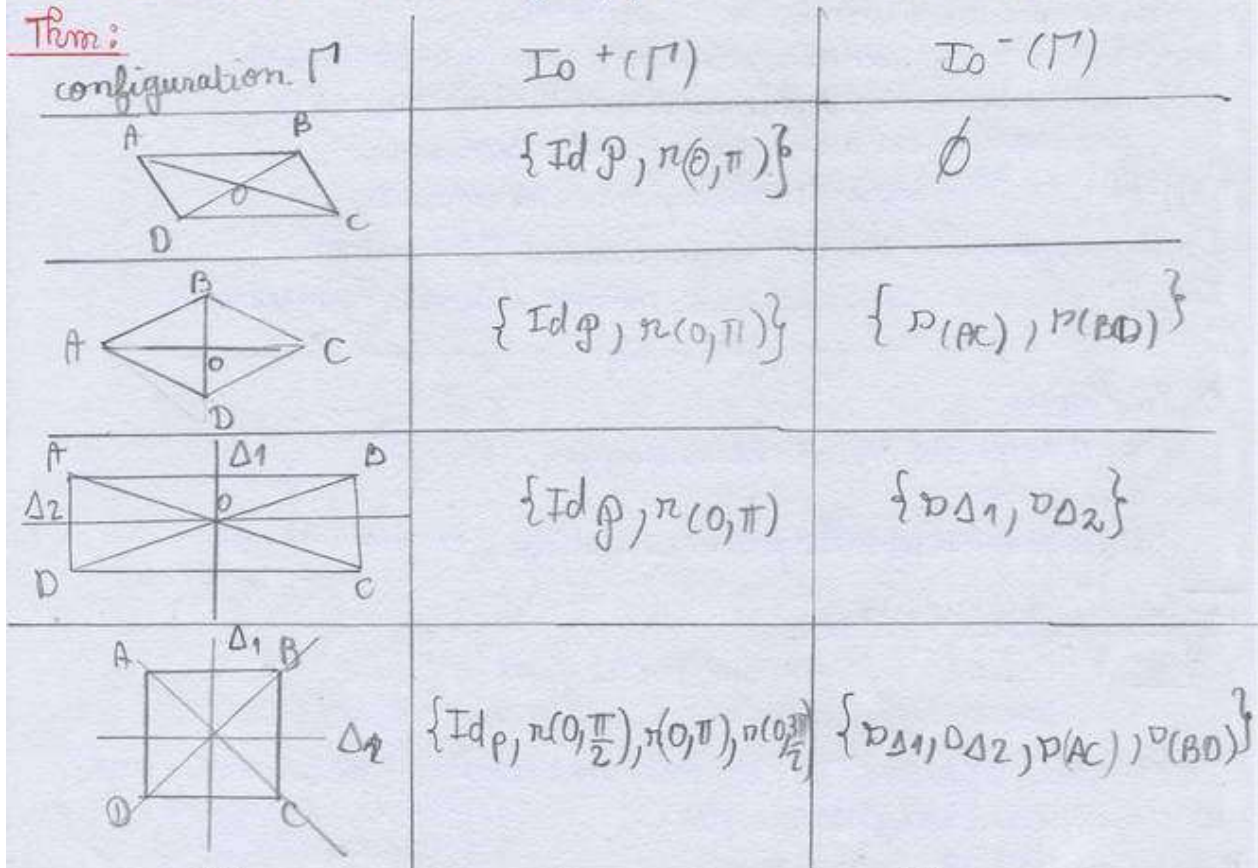 Thm:
configuration Γ
Io⁺(Γ)
Io⁻(Γ)
A B
O
D C
{Id P, r(O,π)}
∅
B
A C
O
D
{Id P, r(O,π)}
{s(AC), s(BD)}
A Δ1 B
Δ2 O
D C
{Id P, r(O,π)
{sΔ1, sΔ2}
A Δ1 B
Δ2
D C
{Id P, r(O,π/2), r(O,π), r(O,3π/2)
{sΔ1, sΔ2, s(AC), s(BD)}